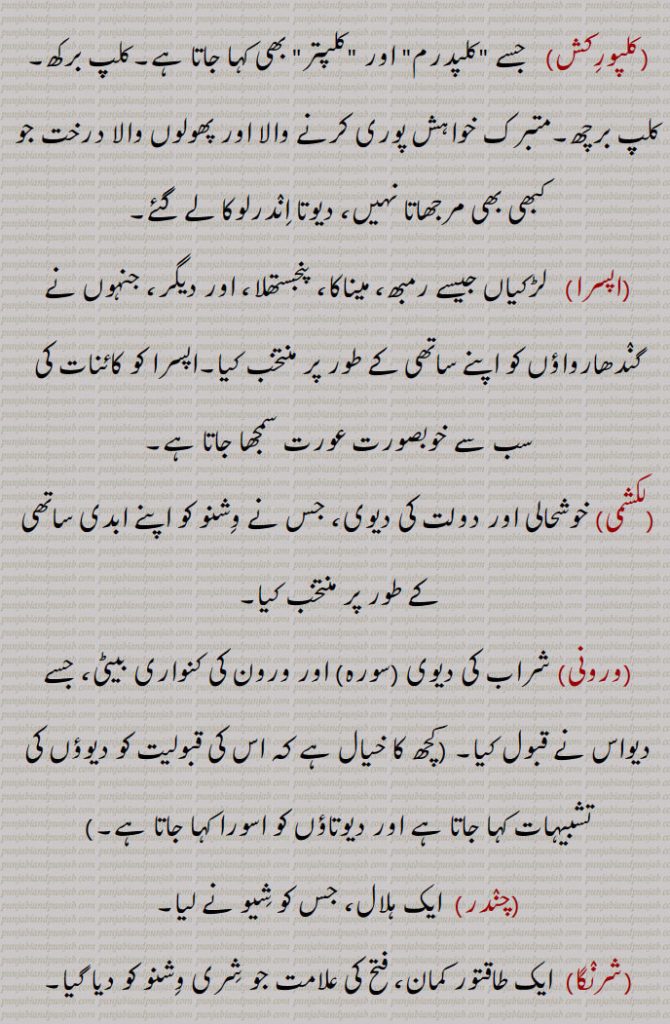 (کلپورِکش) جسے "کلپدرم" اور "کلپتر" بھی کہا جاتا ہے۔ کلپ برکھ۔
کلپ برچھ۔ متبرک خواہش پوری کرنے والا اور پھولوں والا درخت جو
کبھی بھی مرجھاتا نہیں، دیوتا اِنْدرلوکا لے گئے۔
(اپسرا) لڑکیاں جیسے رمبھ، میناکا، پنجستھلا، اور دیگر، جنہوں نے
گنْدھارواؤں کو اپنے ساتھی کے طور پر منتخب کیا۔ اپسرا کو کائنات کی
سب سے خوبصورت عورت سمجھا جاتا ہے۔
(لکشمی) خوشحالی اور دولت کی دیوی، جس نے وِشنو کو اپنے ابدی ساتھی
کے طور پر منتخب کیا۔
(ورونی) شراب کی دیوی (سورہ) اور ورون کی کنواری بیٹی، جسے
دیواس نے قبول کیا۔ (کچھ کا خیال ہے کہ اس کی قبولیت کو دیوؤں کی
تشبیہات کہا جاتا ہے اور دیوتاؤں کو اسورا کہا جاتا ہے۔)
(چنْدر) ایک ہلال، جس کو شِیو نے لیا۔
(شرنْگا) ایک طاقتور کمان، فتح کی علامت جو شِری وِشنو کو دیا گیا۔